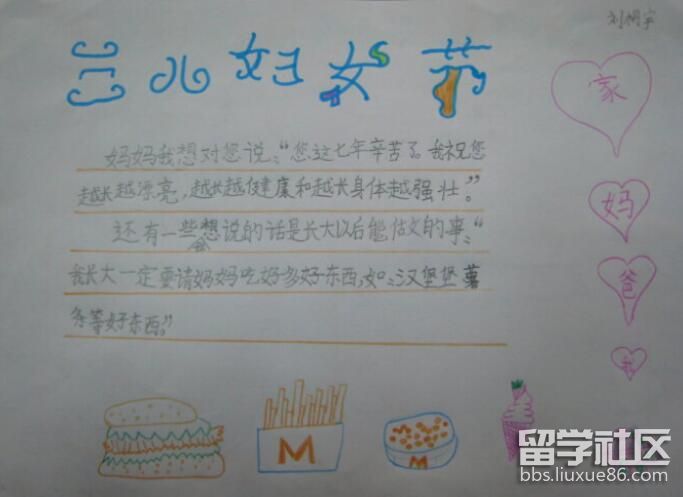 三八妇女节
妈妈我想对您说：“您这七年辛苦了。我祝您
越长越漂亮，越长越健康和越长身体越强壮。”
还有一些想说的话是长大以后能估文的事：“
会
我长大一定要请妈妈吃好多好东西，如：汉堡堡薯
条等好东西。”
家
妈
爸
我
M
M
留学社区
bbs.liuxue86.com